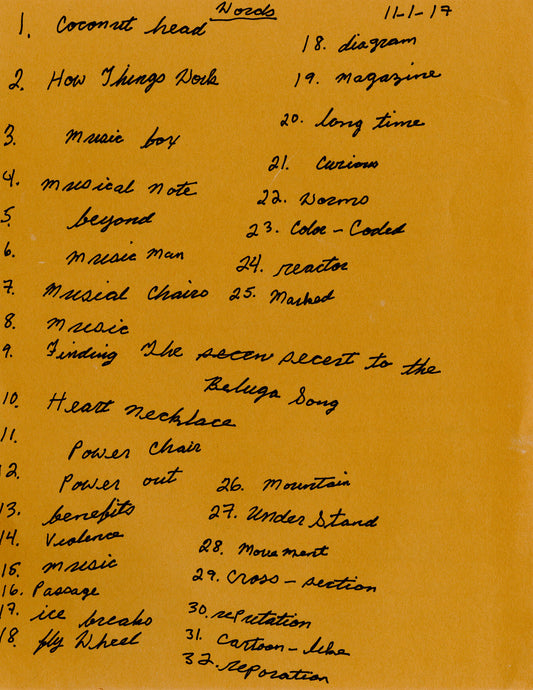 Words
11-1-17
1. Coconut head
2. How Things Work
3. Music box
4. Musical Note
5. beyond
6. Music Man
7. Musical Chairs
8. Music
9. Finding The seccn secert to the
Beluga Song
10. Heart Necklace
11. Power Chair
12. Power out
13. benefits
14. Violence
15. Music
16. Passage
17. ice breaks
18. fly Wheel
18. diagram
19. Magazine
20. long time
21. Curious
22. Worms
23. Color-Coded
24. reactor
25. Marked
26. Mountain
27. Under Stand
28. Movement
29. Cross-section
30. reputation
31. Cartoon-like
32. reporation